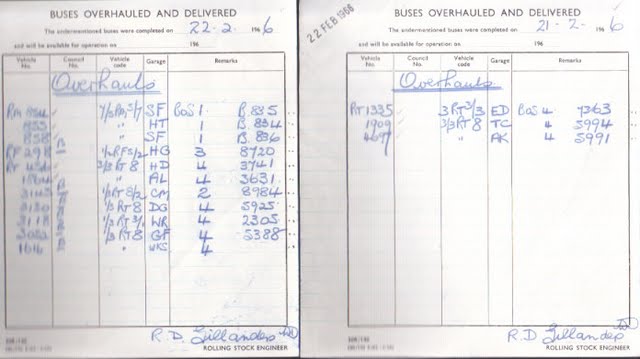 BUSES OVERHAULED AND DELIVERED
The undermentioned buses were completed on 22-2 1966
and will be available for operation on 196
Vehicle No. Council No. Vehicle code Garage Remarks
Overhauls
RM 854 SF BOS 1 B.835
855 " HT 1 B.834
858 " SF 1 B.836
RF 298 B HG 3 8720
RT 3/3 RT 8 HD 4 3741
" AL 4 3631
B 1/2 RT 8/2 CM 2 8984
B 1/3 RT 8 DG 4 5925
3118 B WR 4 2305
B 1/3 RT 8 GF 4 5388
1616 B " WKS 4
R.D. Gillanders
ROLLING STOCK ENGINEER
22 FEB 1966
BUSES OVERHAULED AND DELIVERED
The undermentioned buses were completed on 21-2 1966
and will be available for operation on 196
Vehicle No. Council No. Vehicle code Garage Remarks
Overhauls
RT 1335 3 RT 3/3 ED BOS 4 7363
1909 3/3 RT 8 TC 4 5994
4697 " AK 4 5991
R.D. Gillanders
ROLLING STOCK ENGINEER